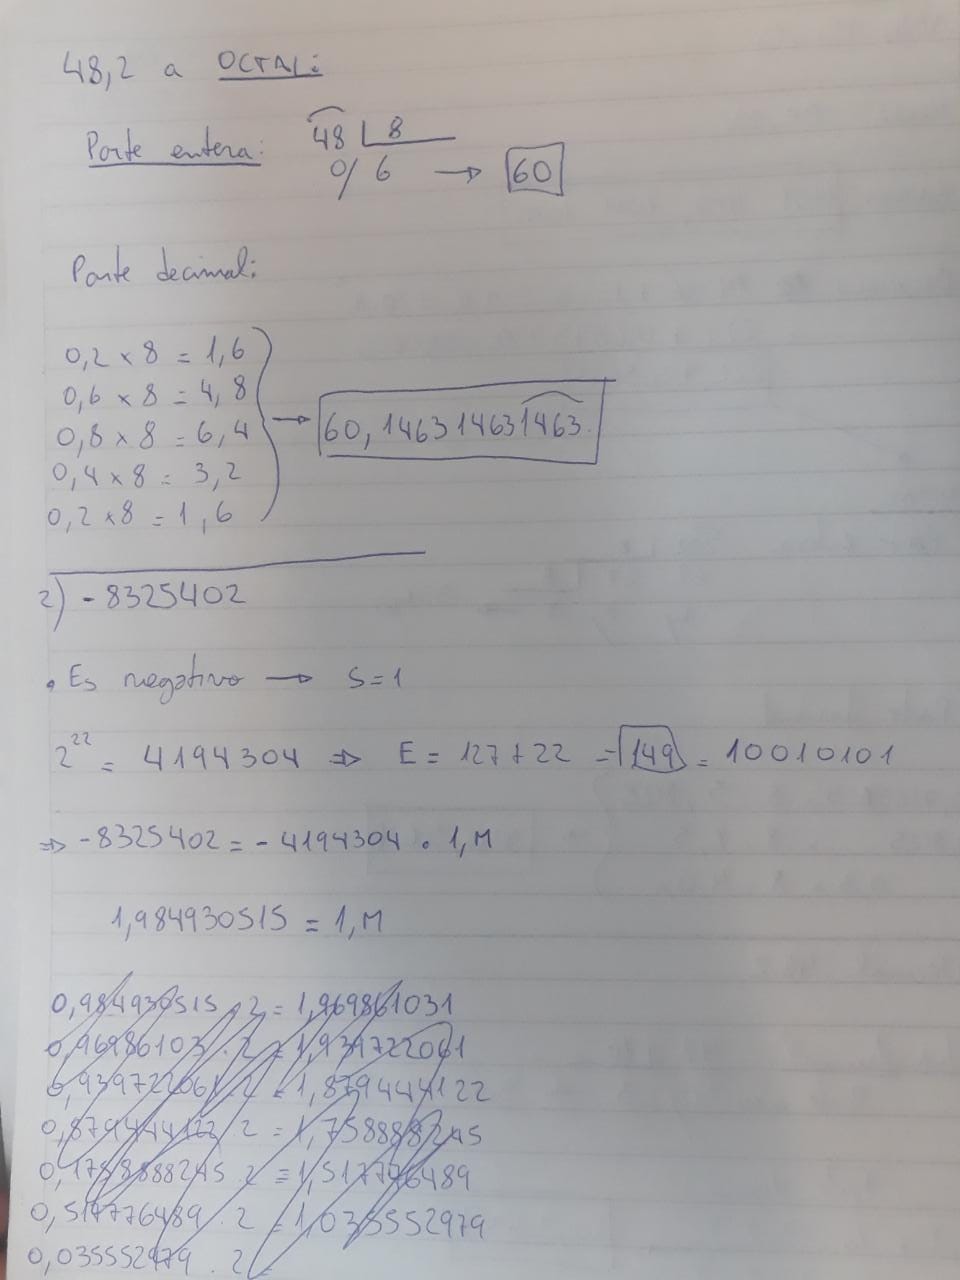 48,2 a OCTAL:
Parte entera: 48 | 8
0/ 6 → 60
Parte decimal:
0,2 × 8 = 1,6
0,6 × 8 = 4,8
0,8 × 8 = 6,4 → 60,146314631463
0,4 × 8 = 3,2
0,2 × 8 = 1,6
2) - 8325402
• Es negativo → S=1
2^22 = 4194304 ⇒ E = 127+22 = 149 = 10010101
⇒ -8325402 = - 4194304 • 1,M
1,984930515 = 1,M
0,984930515 . 2 = 1,969861031
0,969861031 . 2 = 1,939722061
0,939722061 . 2 = 1,879444122
0,879444122 . 2 = 1,758888245
0,1758888245 . 2 = 1,517776489
0,517776489 . 2 = 1,035552979
0,035552979 . 2 =